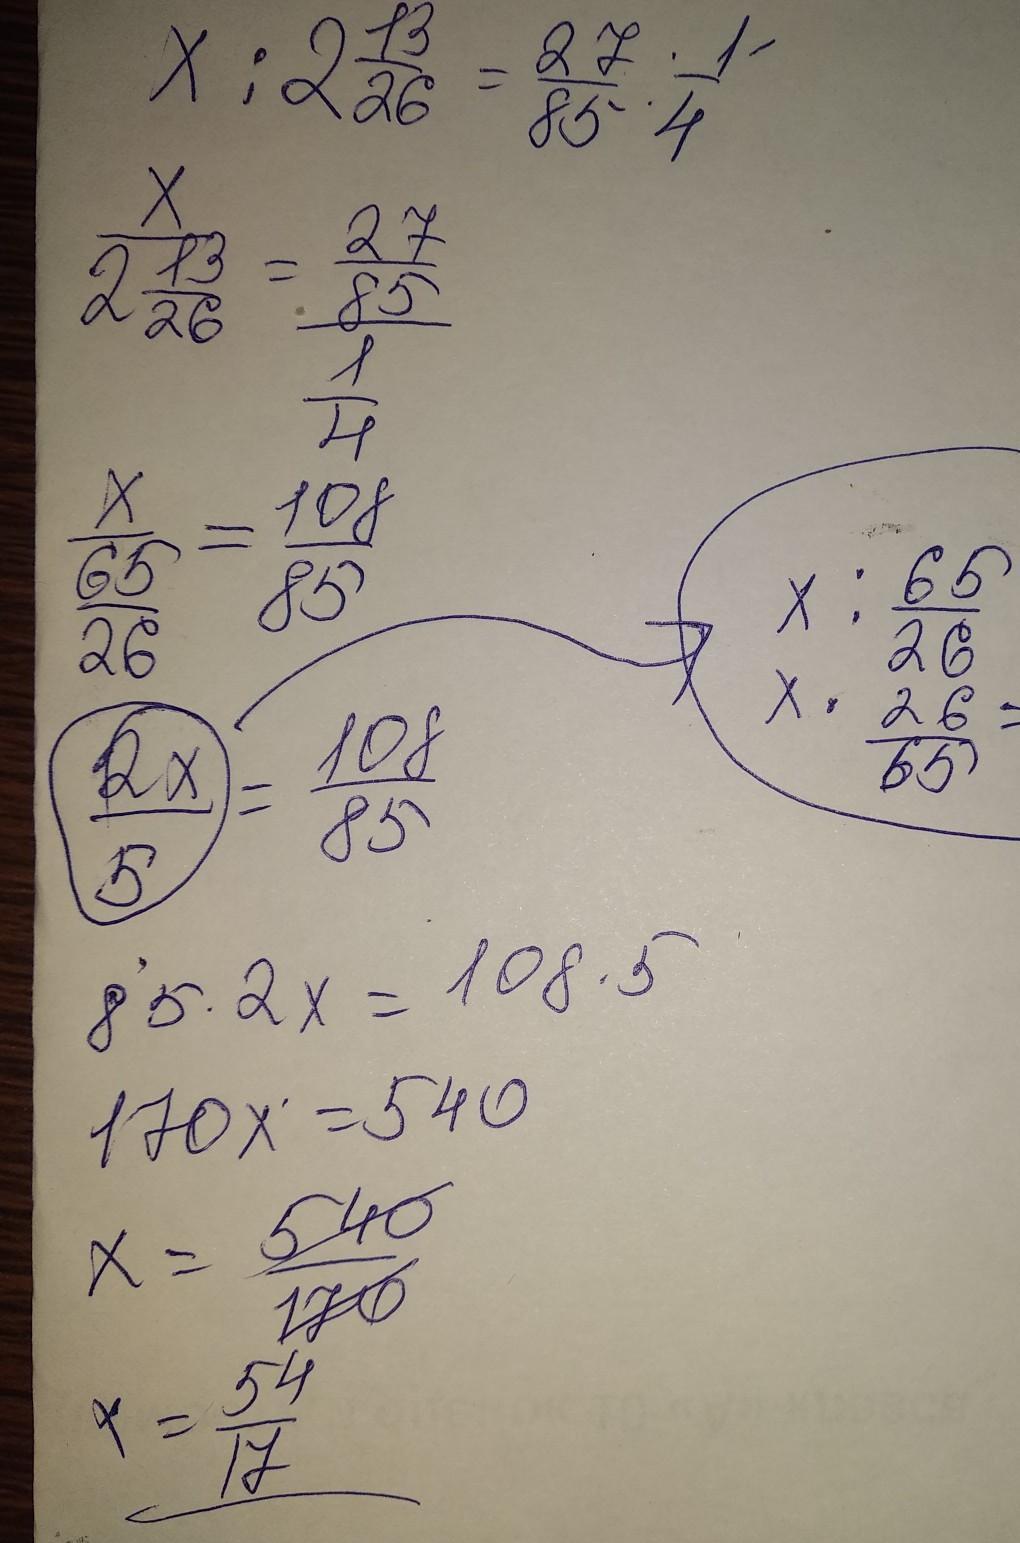 x : 2 13/26 = 27/85 : 1/4
x / 2 13/26 = 27/85 / 1/4
x / 65/26 = 108/85
2x/5 = 108/85
x : 65/26
x · 26/65 =
85 · 2x = 108 · 5
170x = 540
x = 540/170
x = 54/17